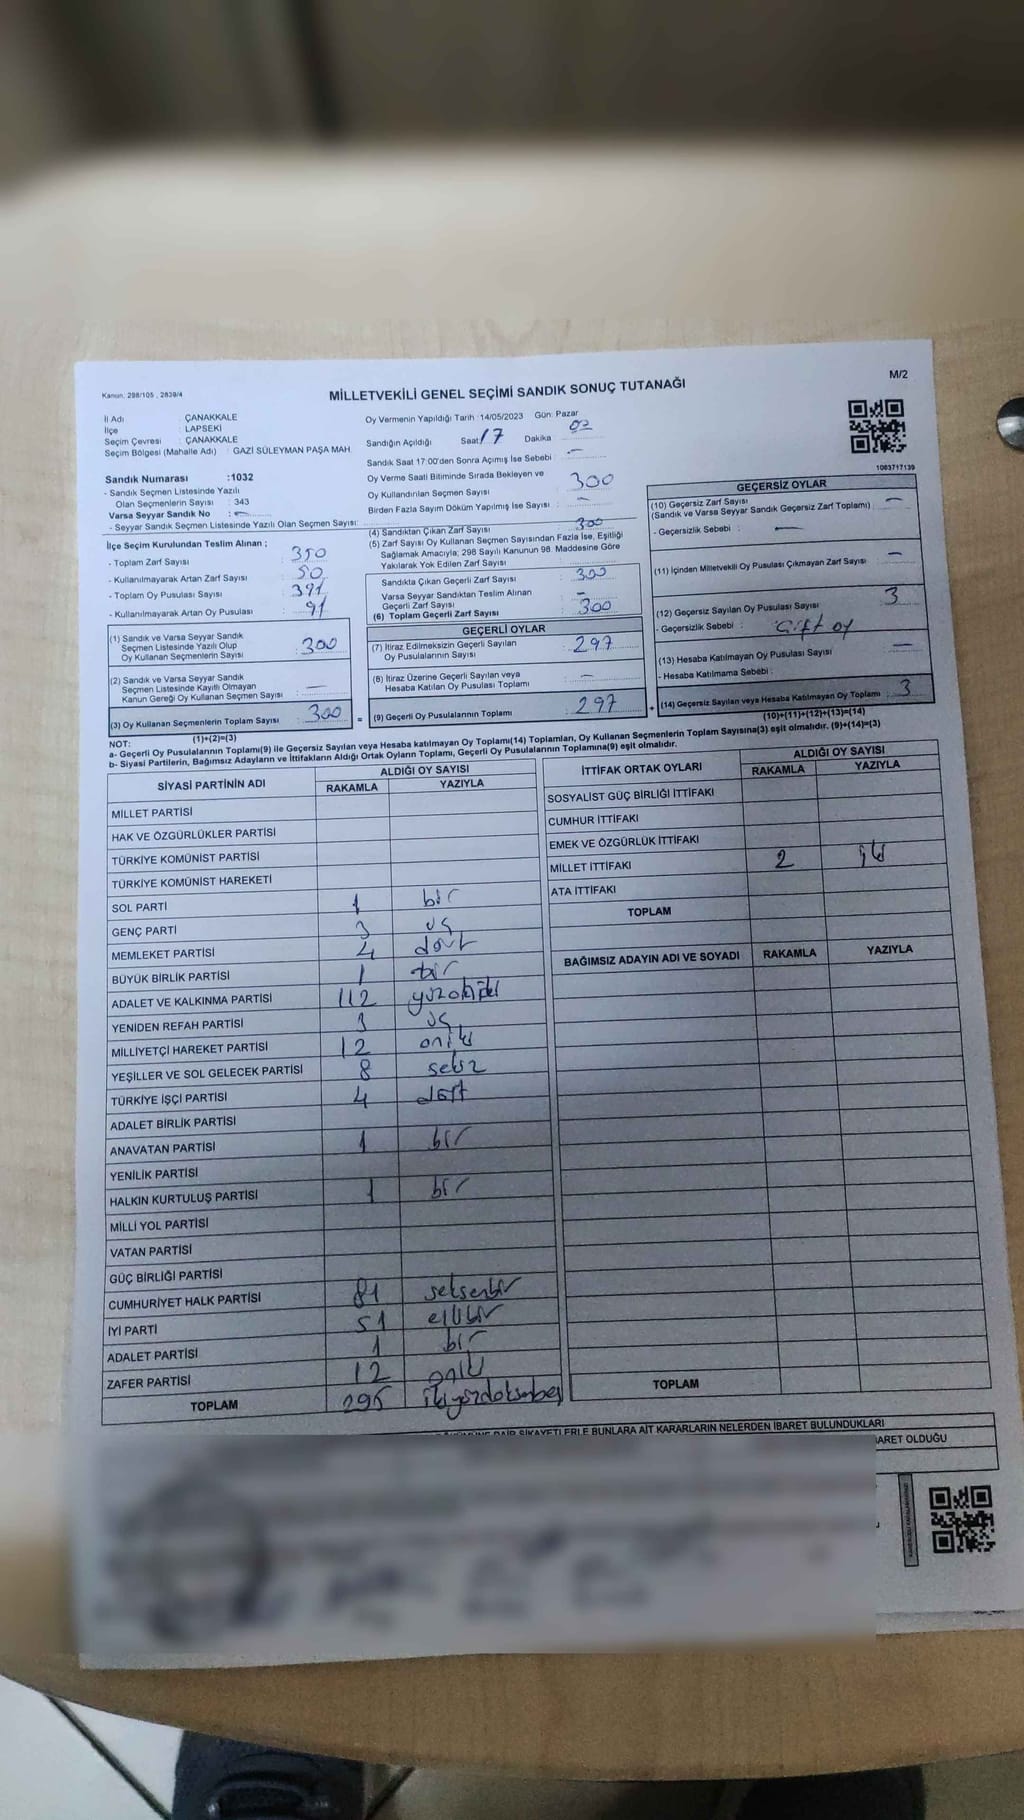 Kanun, 298/105 , 2839/4
MİLLETVEKİLİ GENEL SEÇİMİ SANDIK SONUÇ TUTANAĞI
M/2
İl Adı : ÇANAKKALE
İlçe : LAPSEKİ
Seçim Çevresi : ÇANAKKALE
Seçim Bölgesi (Mahalle Adı) : GAZİ SÜLEYMAN PAŞA MAH.
Sandık Numarası :1032
- Sandık Seçmen Listesinde Yazılı
Olan Seçmenlerin Sayısı : 343
Varsa Seyyar Sandık No : —
- Seyyar Sandık Seçmen Listesinde Yazılı Olan Seçmen Sayısı:
Oy Vermenin Yapıldığı Tarih :14/05/2023 Gün: Pazar
Sandığın Açıldığı Saat 17 Dakika 02
Sandık Saat 17:00'den Sonra Açımış İse Sebebi : —
Oy Verme Saati Bitiminde Sırada Bekleyen ve
Oy Kullandırılan Seçmen Sayısı : 300
Birden Fazla Sayım Döküm Yapılmış İse Sayısı : —
1083717139
İlçe Seçim Kurulundan Teslim Alınan ;
- Toplam Zarf Sayısı : 350
- Kullanılmayarak Artan Zarf Sayısı : 50
- Toplam Oy Pusulası Sayısı : 391
- Kullanılmayarak Artan Oy Pusulası : 91
(1) Sandık ve Varsa Seyyar Sandık
Seçmen Listesinde Yazılı Olup
Oy Kullanan Seçmenlerin Sayısı : 300
(2) Sandık ve Varsa Seyyar Sandık
Seçmen Listesinde Kayıtlı Olmayan
Kanun Gereği Oy Kullanan Seçmen Sayısı : —
(3) Oy Kullanan Seçmenlerin Toplam Sayısı : 300
(1)+(2)=(3)
(4) Sandıktan Çıkan Zarf Sayısı : 300
(5) Zarf Sayısı Oy Kullanan Seçmen Sayısından Fazla İse, Eşitliği
Sağlamak Amacıyla; 298 Sayılı Kanunun 98. Maddesine Göre
Yakılarak Yok Edilen Zarf Sayısı :
Sandıkta Çıkan Geçerli Zarf Sayısı : 300
Varsa Seyyar Sandıktan Teslim Alınan
Geçerli Zarf Sayısı : —
(6) Toplam Geçerli Zarf Sayısı : 300
GEÇERLİ OYLAR
(7) İtiraz Edilmeksizin Geçerli Sayılan
Oy Pusulalarının Sayısı : 297
(8) İtiraz Üzerine Geçerli Sayılan veya
Hesaba Katılan Oy Pusulası Toplamı : —
= (9) Geçerli Oy Pusulalarının Toplamı : 297 +
GEÇERSİZ OYLAR
(10) Geçersiz Zarf Sayısı
(Sandık ve Varsa Seyyar Sandık Geçersiz Zarf Toplamı) : —
- Geçersizlik Sebebi : —
(11) İçinden Milletvekili Oy Pusulası Çıkmayan Zarf Sayısı : —
(12) Geçersiz Sayılan Oy Pusulası Sayısı : 3
- Geçersizlik Sebebi : Çift oy
(13) Hesaba Katılmayan Oy Pusulası Sayısı : —
- Hesaba Katılmama Sebebi :
(14) Geçersiz Sayılan veya Hesaba Katılmayan Oy Toplamı : 3
(10)+(11)+(12)+(13)=(14)
NOT:
a- Geçerli Oy Pusulalarının Toplamı(9) ile Geçersiz Sayılan veya Hesaba katılmayan Oy Toplamı(14) Toplamları, Oy Kullanan Seçmenlerin Toplam Sayısına(3) eşit olmalıdır. (9)+(14)=(3)
b- Siyasi Partilerin, Bağımsız Adayların ve İttifakların Aldığı Ortak Oyların Toplamı, Geçerli Oy Pusulalarının Toplamına(9) eşit olmalıdır.
SİYASİ PARTİNİN ADI ALDIĞI OY SAYISI
RAKAMLA YAZIYLA
MİLLET PARTİSİ
HAK VE ÖZGÜRLÜKLER PARTİSİ
TÜRKİYE KOMÜNİST PARTİSİ
TÜRKİYE KOMÜNİST HAREKETİ
SOL PARTİ 1 bir
GENÇ PARTİ 3 üç
MEMLEKET PARTİSİ 4 dört
BÜYÜK BİRLİK PARTİSİ 1 bir
ADALET VE KALKINMA PARTİSİ 112 yüzoniki
YENİDEN REFAH PARTİSİ 3 üç
MİLLİYETÇİ HAREKET PARTİSİ 12 oniki
YEŞİLLER VE SOL GELECEK PARTİSİ 8 sekiz
TÜRKİYE İŞÇİ PARTİSİ 4 dört
ADALET BİRLİK PARTİSİ
ANAVATAN PARTİSİ 1 bir
YENİLİK PARTİSİ
HALKIN KURTULUŞ PARTİSİ 1 bir
MİLLİ YOL PARTİSİ
VATAN PARTİSİ
GÜÇ BİRLİĞİ PARTİSİ
CUMHURİYET HALK PARTİSİ 81 seksenbir
İYİ PARTİ 51 ellibir
ADALET PARTİSİ 1 bir
ZAFER PARTİSİ 12 oniki
TOPLAM 295 ikiyüzdoksanbeş
İTTİFAK ORTAK OYLARI ALDIĞI OY SAYISI
RAKAMLA YAZIYLA
SOSYALİST GÜÇ BİRLİĞİ İTTİFAKI
CUMHUR İTTİFAKI
EMEK VE ÖZGÜRLÜK İTTİFAKI
MİLLET İTTİFAKI 2 iki
ATA İTTİFAKI
TOPLAM
BAĞIMSIZ ADAYIN ADI VE SOYADI RAKAMLA YAZIYLA
TOPLAM
ŞİKAYETLERLE BUNLARA AİT KARARLARIN NELERDEN İBARET BULUNDUKLARI
OLDUĞU